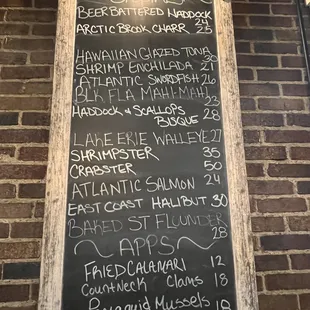 BEER BATTERED HADDOCK
24
ARCTIC BRONK CHARR 25
HAWAIIAN GLAZED TUNA
30
SHRIMP ENCHILADA 21
ATLANTIC SWORDFISH 26
BLK FLA MAHI-MAHI
23
HADDOCK & SCALLOPS
BISQUE 28
LAKE ERIE WALLEYE 27
SHRIMPSTER 35
CRABSTER 50
ATLANTIC SALMON 24
EAST COAST HALIBUT 30
BAKED ST FLOUNDER
28
~ APPS ~
FRIED CALAMARI 12
COUNTNECK CLAMS 18
MUSSELS